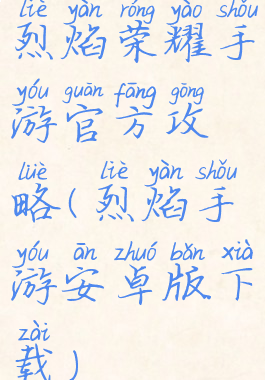 liè yàn róng yào shǒu
烈焰荣耀手
yóu guān fāng gōng
游官方攻
lüè liè yàn shǒu
略(烈焰手
yóu ān zhuó bǎn xià
游安卓版下
zài
载)